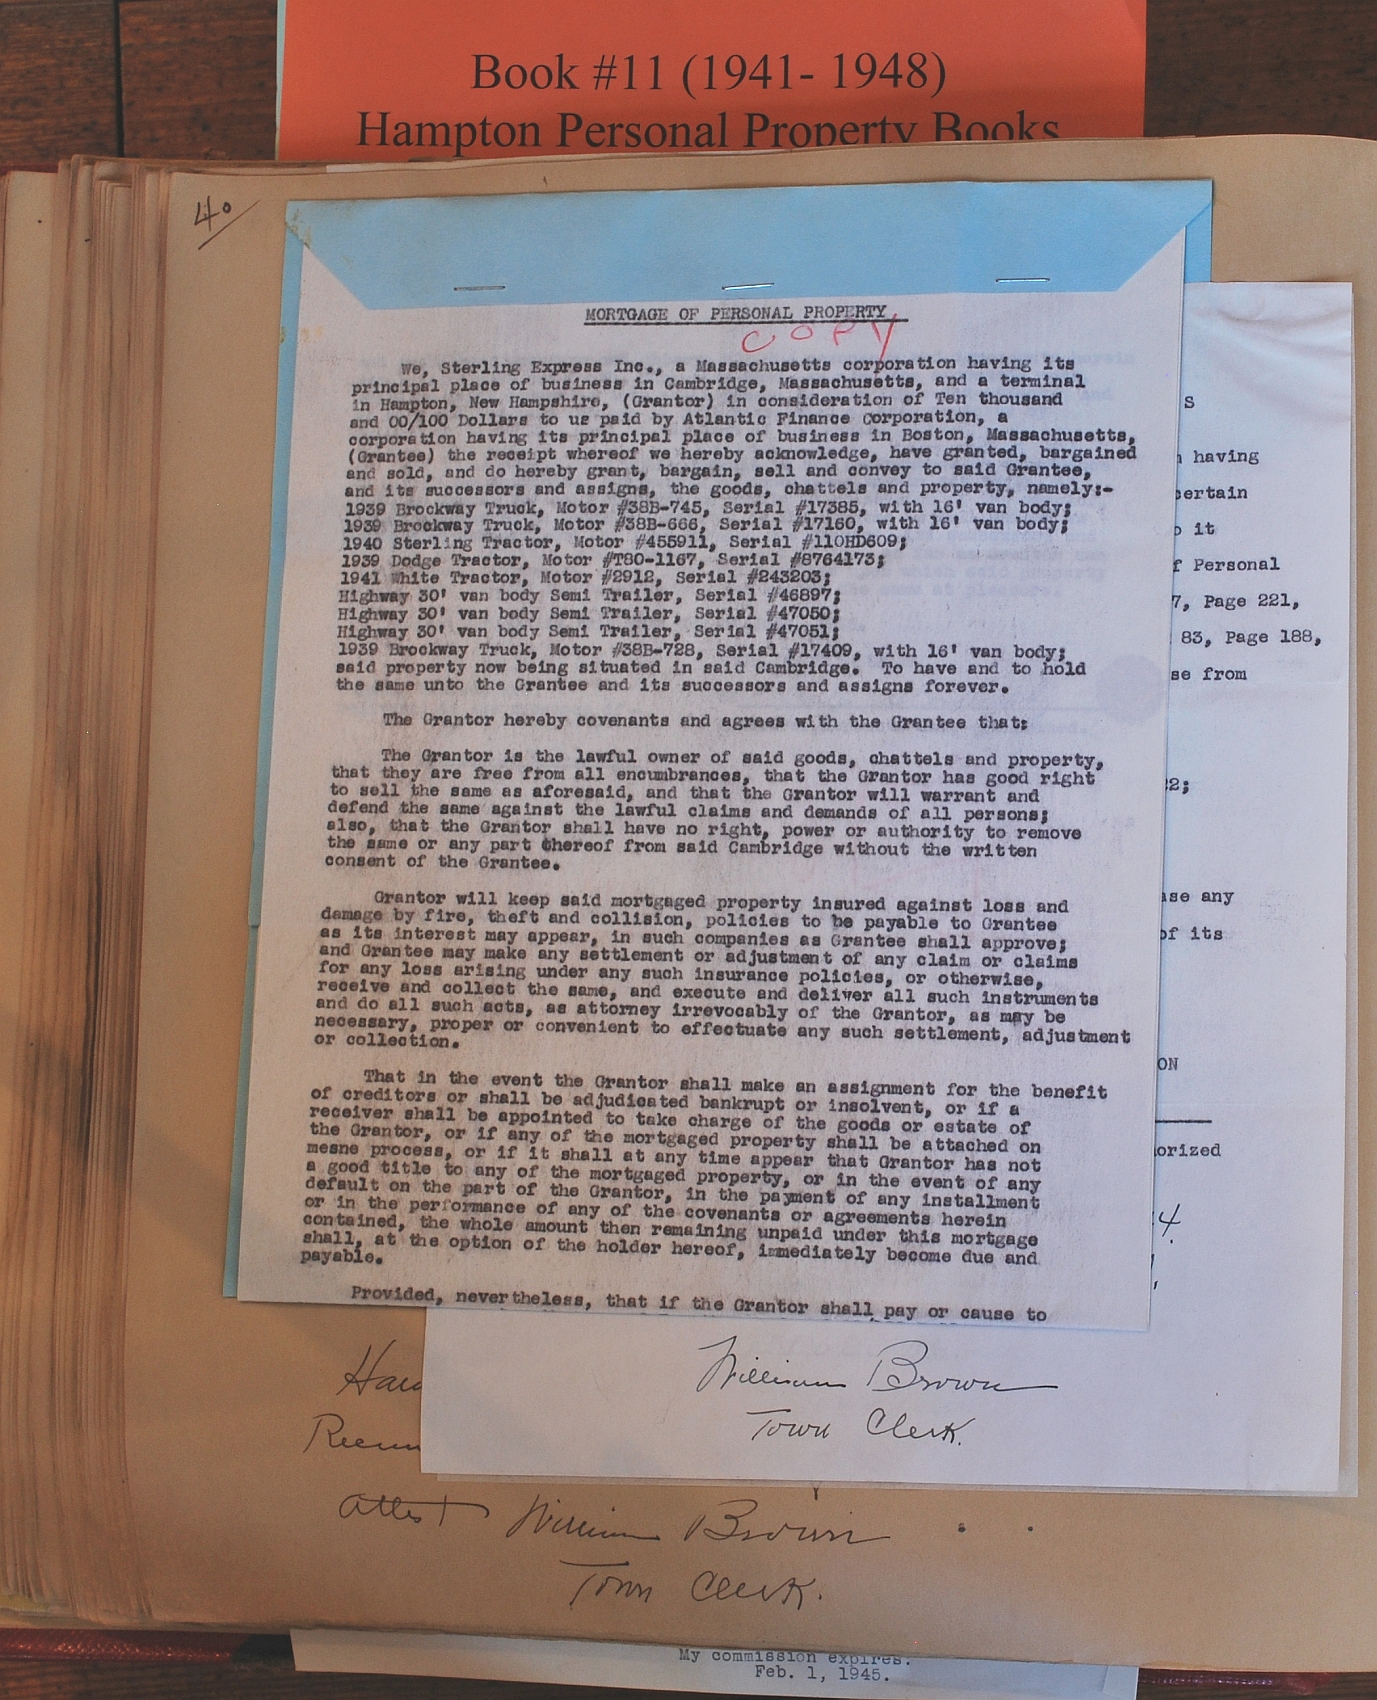 Book #11 (1941- 1948)
Hampton Personal Property Books
40
MORTGAGE OF PERSONAL PROPERTY
COPY
We, Sterling Express Inc., a Massachusetts corporation having its
principal place of business in Cambridge, Massachusetts, and a terminal
in Hampton, New Hampshire, (Grantor) in consideration of Ten thousand
and 00/100 Dollars to us paid by Atlantic Finance Corporation, a
corporation having its principal place of business in Boston, Massachusetts,
(Grantee) the receipt whereof we hereby acknowledge, have granted, bargained
and sold, and do hereby grant, bargain, sell and convey to said Grantee,
and its successors and assigns, the goods, chattels and property, namely:-
1939 Brockway Truck, Motor #38B-745, Serial #17385, with 16' van body;
1939 Brockway Truck, Motor #38B-666, Serial #17160, with 16' van body;
1940 Sterling Tractor, Motor #455911, Serial #110HD609;
1939 Dodge Tractor, Motor #T80-1167, Serial #8764173;
1941 White Tractor, Motor #2912, Serial #243203;
Highway 30' van body Semi Trailer, Serial #46897;
Highway 30' van body Semi Trailer, Serial #47050;
Highway 30' van body Semi Trailer, Serial #47051;
1939 Brockway Truck, Motor #38B-728, Serial #17409, with 16' van body;
said property now being situated in said Cambridge. To have and to hold
the same unto the Grantee and its successors and assigns forever.
The Grantor hereby covenants and agrees with the Grantee that:
The Grantor is the lawful owner of said goods, chattels and property,
that they are free from all encumbrances, that the Grantor has good right
to sell the same as aforesaid, and that the Grantor will warrant and
defend the same against the lawful claims and demands of all persons;
also, that the Grantor shall have no right, power or authority to remove
the same or any part thereof from said Cambridge without the written
consent of the Grantee.
Grantor will keep said mortgaged property insured against loss and
damage by fire, theft and collision, policies to be payable to Grantee
as its interest may appear, in such companies as Grantee shall approve;
and Grantee may make any settlement or adjustment of any claim or claims
for any loss arising under any such insurance policies, or otherwise,
receive and collect the same, and execute and deliver all such instruments
and do all such acts, as attorney irrevocably of the Grantor, as may be
necessary, proper or convenient to effectuate any such settlement, adjustment
or collection.
That in the event the Grantor shall make an assignment for the benefit
of creditors or shall be adjudicated bankrupt or insolvent, or if a
receiver shall be appointed to take charge of the goods or estate of
the Grantor, or if any of the mortgaged property shall be attached on
mesne process, or if it shall at any time appear that Grantor has not
a good title to any of the mortgaged property, or in the event of any
default on the part of the Grantor, in the payment of any installment
or in the performance of any of the covenants or agreements herein
contained, the whole amount then remaining unpaid under this mortgage
shall, at the option of the holder hereof, immediately become due and
payable.
Provided, nevertheless, that if the Grantor shall pay or cause to
S
having
ertain
it
Personal
7, Page 221,
83, Page 188,
se from
2;
se any
of its
ON
orized
4.
William Brown
Town Clerk.
Attest William Brown
Town Clerk.
My commission expires.
Feb. 1, 1945.